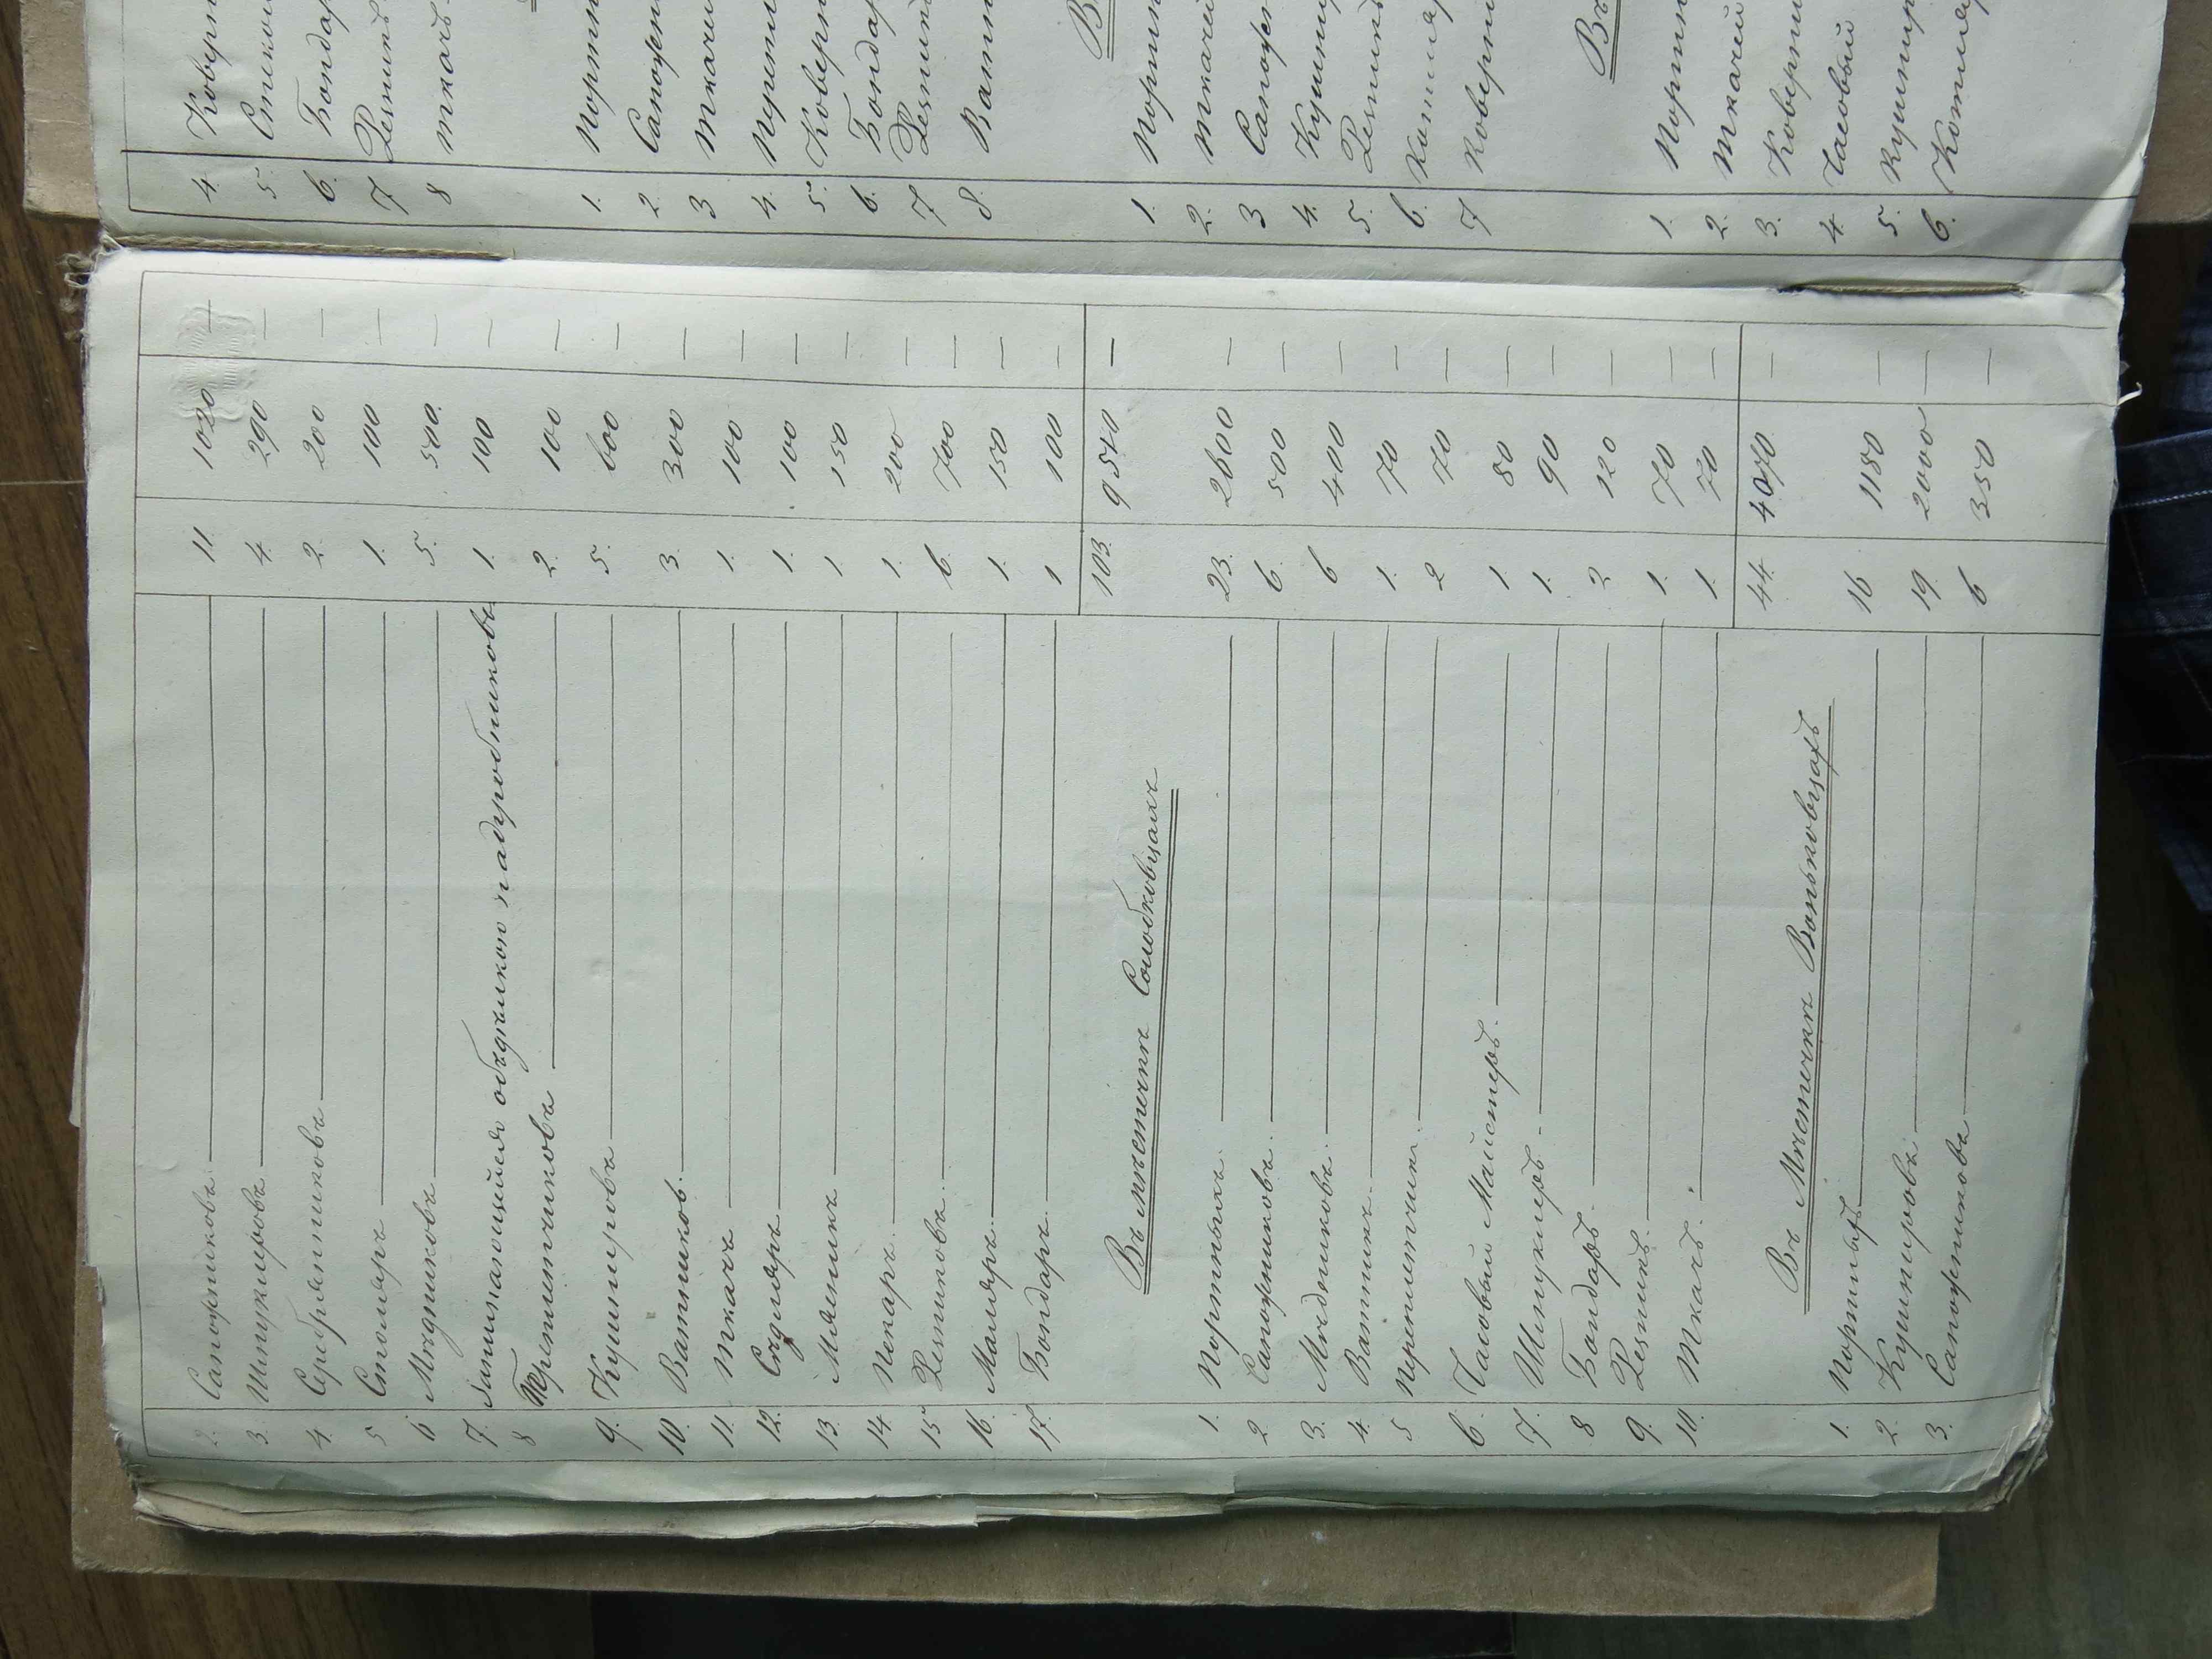 2. Сапожниковъ 11. 1020 —
3. Штукировъ 4. 290 —
4. Серебрянниковъ 2. 200 —
5 Столяръ 1. 100 —
6 Мѣдниковъ 5. 500. —
7. Занимающійся 1. 100 —
8 2. 100 —
9. Кушнировъ 5. 600 —
10. Ватниковъ. 3. 300 —
11. Ткачъ 1. 100 —
12. Столяръ 1. 100 —
13. Мясникъ 1. 150 —
14. Пекаръ. 1. 200 —
15 Резниковъ. 6. 700 —
16. Маляръ. 1. 150 —
17. Бондаръ. 1 100 —
103. 9540 —
Въ мѣстечкѣ Солобковцахъ
1. Портныхъ. 23. 2600 —
2 Сапожниковъ. 6. 500 —
3. Мѣдниковъ. 6 400 —
4. Ватникъ. 1. 70 —
5 2 70 —
6. Часовый Майстеръ. 1. 80 —
7. Штукиръ. 1. 90 —
8 Бондаръ. 2 120 —
9. Резникъ. 1. 70 —
10. Ткачъ. 1. 70 —
44. 4070. —
Въ Мѣстечкѣ Вонковцахъ
1. Портныхъ 16 1180 —
2. Кушнировъ. 19. 2000 —
3. Сапожниковъ 6 350 —
4.
5. Столя
6. Бондар
7 Резникъ
8 Ткачъ.
1. Портн
2. Сапожн
3 Ткачи
4.
5. Коверн
6. Бондар
7 Резник
8. Ватн
В
1. Портн
2. Ткачи
3 Сапожн
4. Кушни
5. Резник
6.
7 Коверн
Въ
1. Портн
2. Ткачи
3. Коверн
4. Часовый
5. Кушнир
6. Котляр